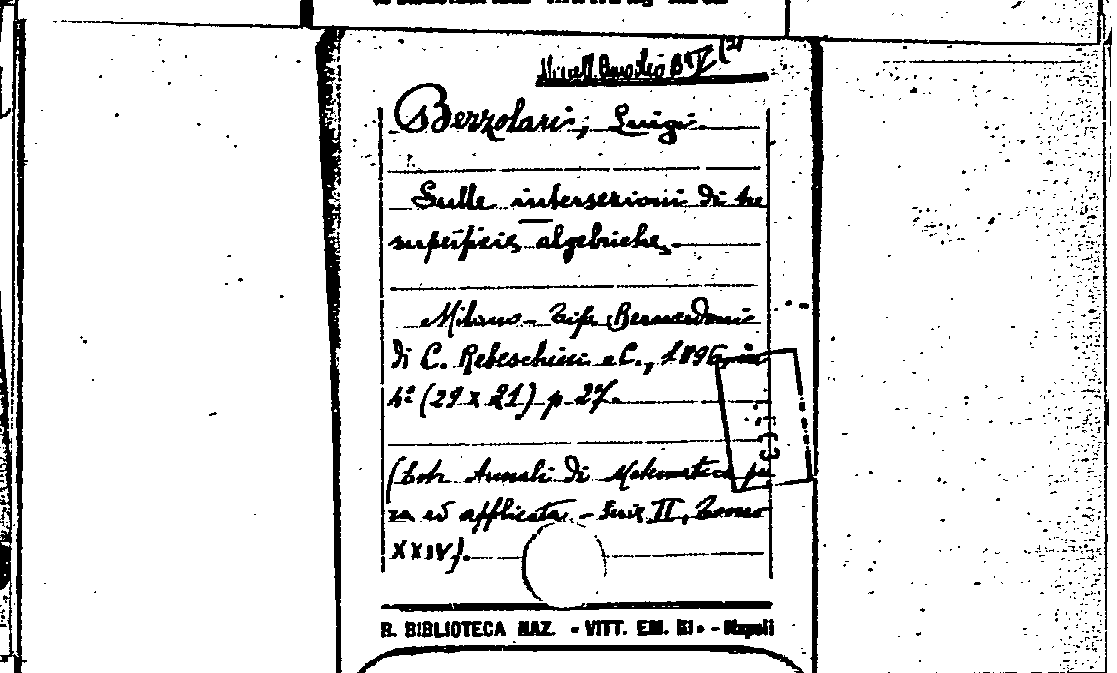 Miscell. Busta B V (21
Berzolari, Luigi.
Sulle intersezioni di tre
superficie algebriche.
Milano - Tip. Bernardoni
di C. Rebeschini e C., 1896, in
4º (29 x 21) p. 27.
(Estr. Annali di Matematica pu
ra ed applicata. - Serie II, Tomo
XXIV).
R. BIBLIOTECA NAZ. « VITT. EM. III » - Napoli